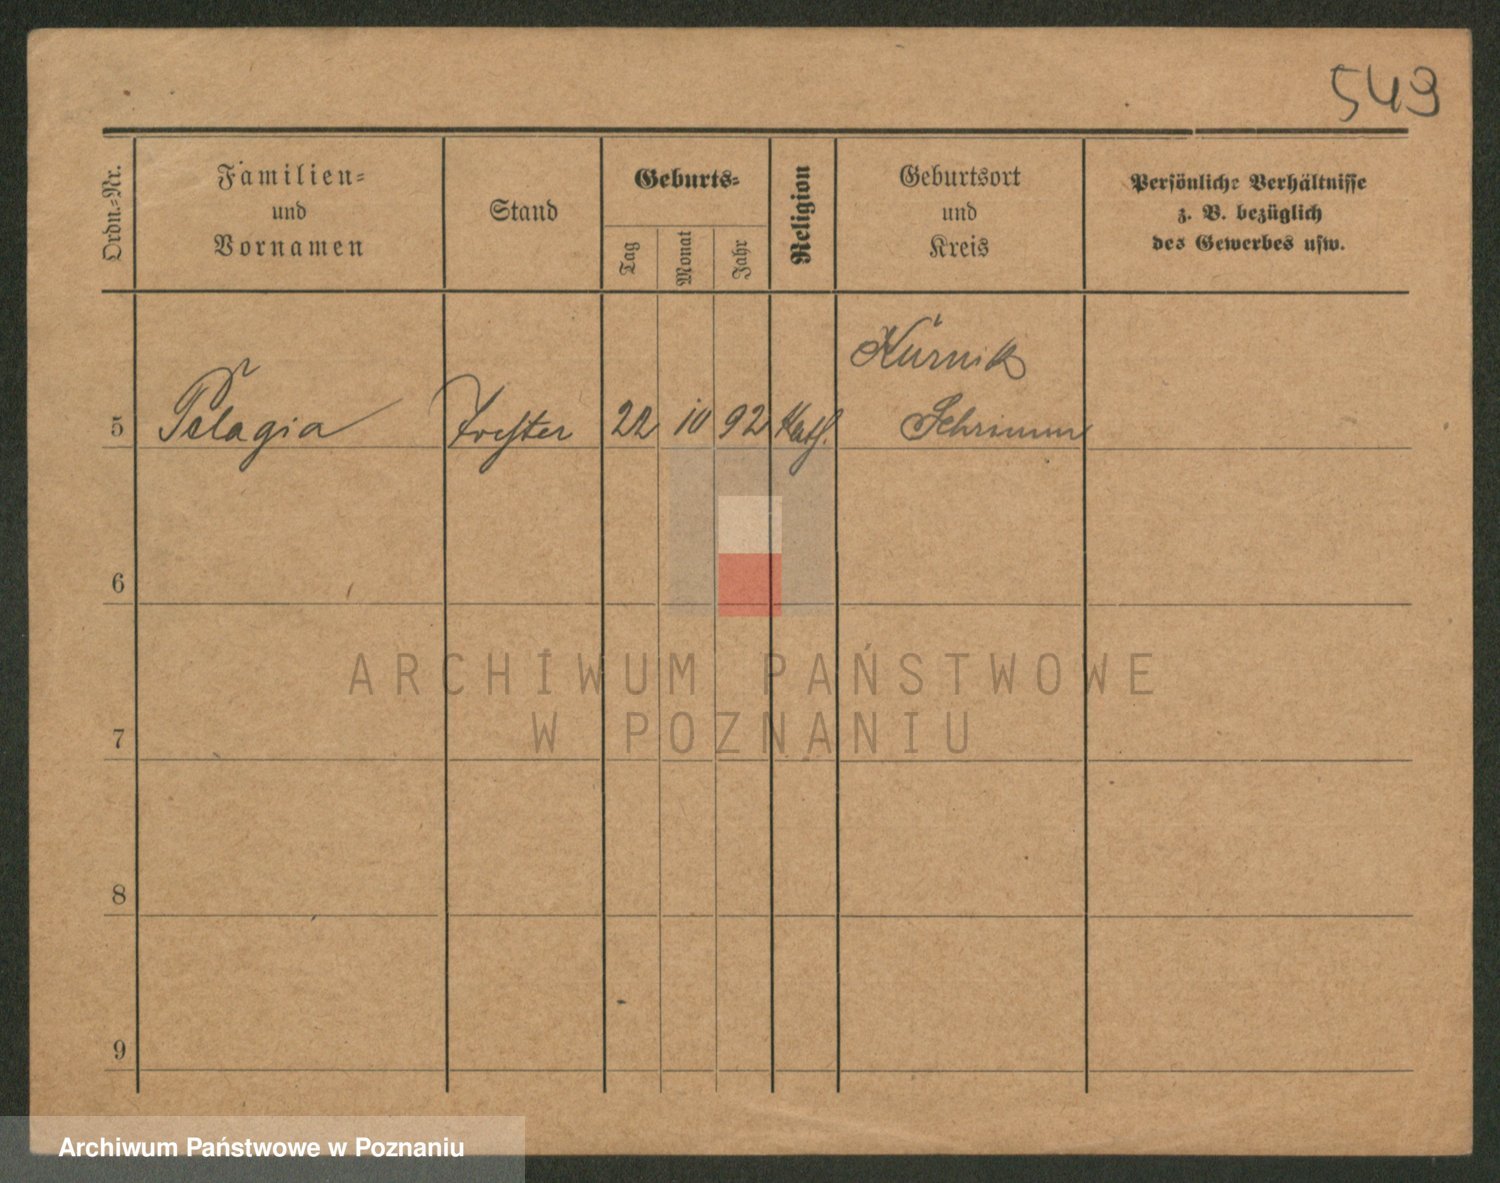 543
Ordn.-Nr.
Familien-
und
Vornamen
Stand
Geburts-
Tag
Monat
Jahr
Religion
Geburtsort
und
Kreis
Persönliche Verhältnisse
z. B. bezüglich
des Gewerbes usw.
Kurnik
5 Pelagia Tochter 22 10 92 Kath. Schrimm
6
7
8
9
ARCHIWUM PAŃSTWOWE
W POZNANIU
Archiwum Państwowe w Poznaniu